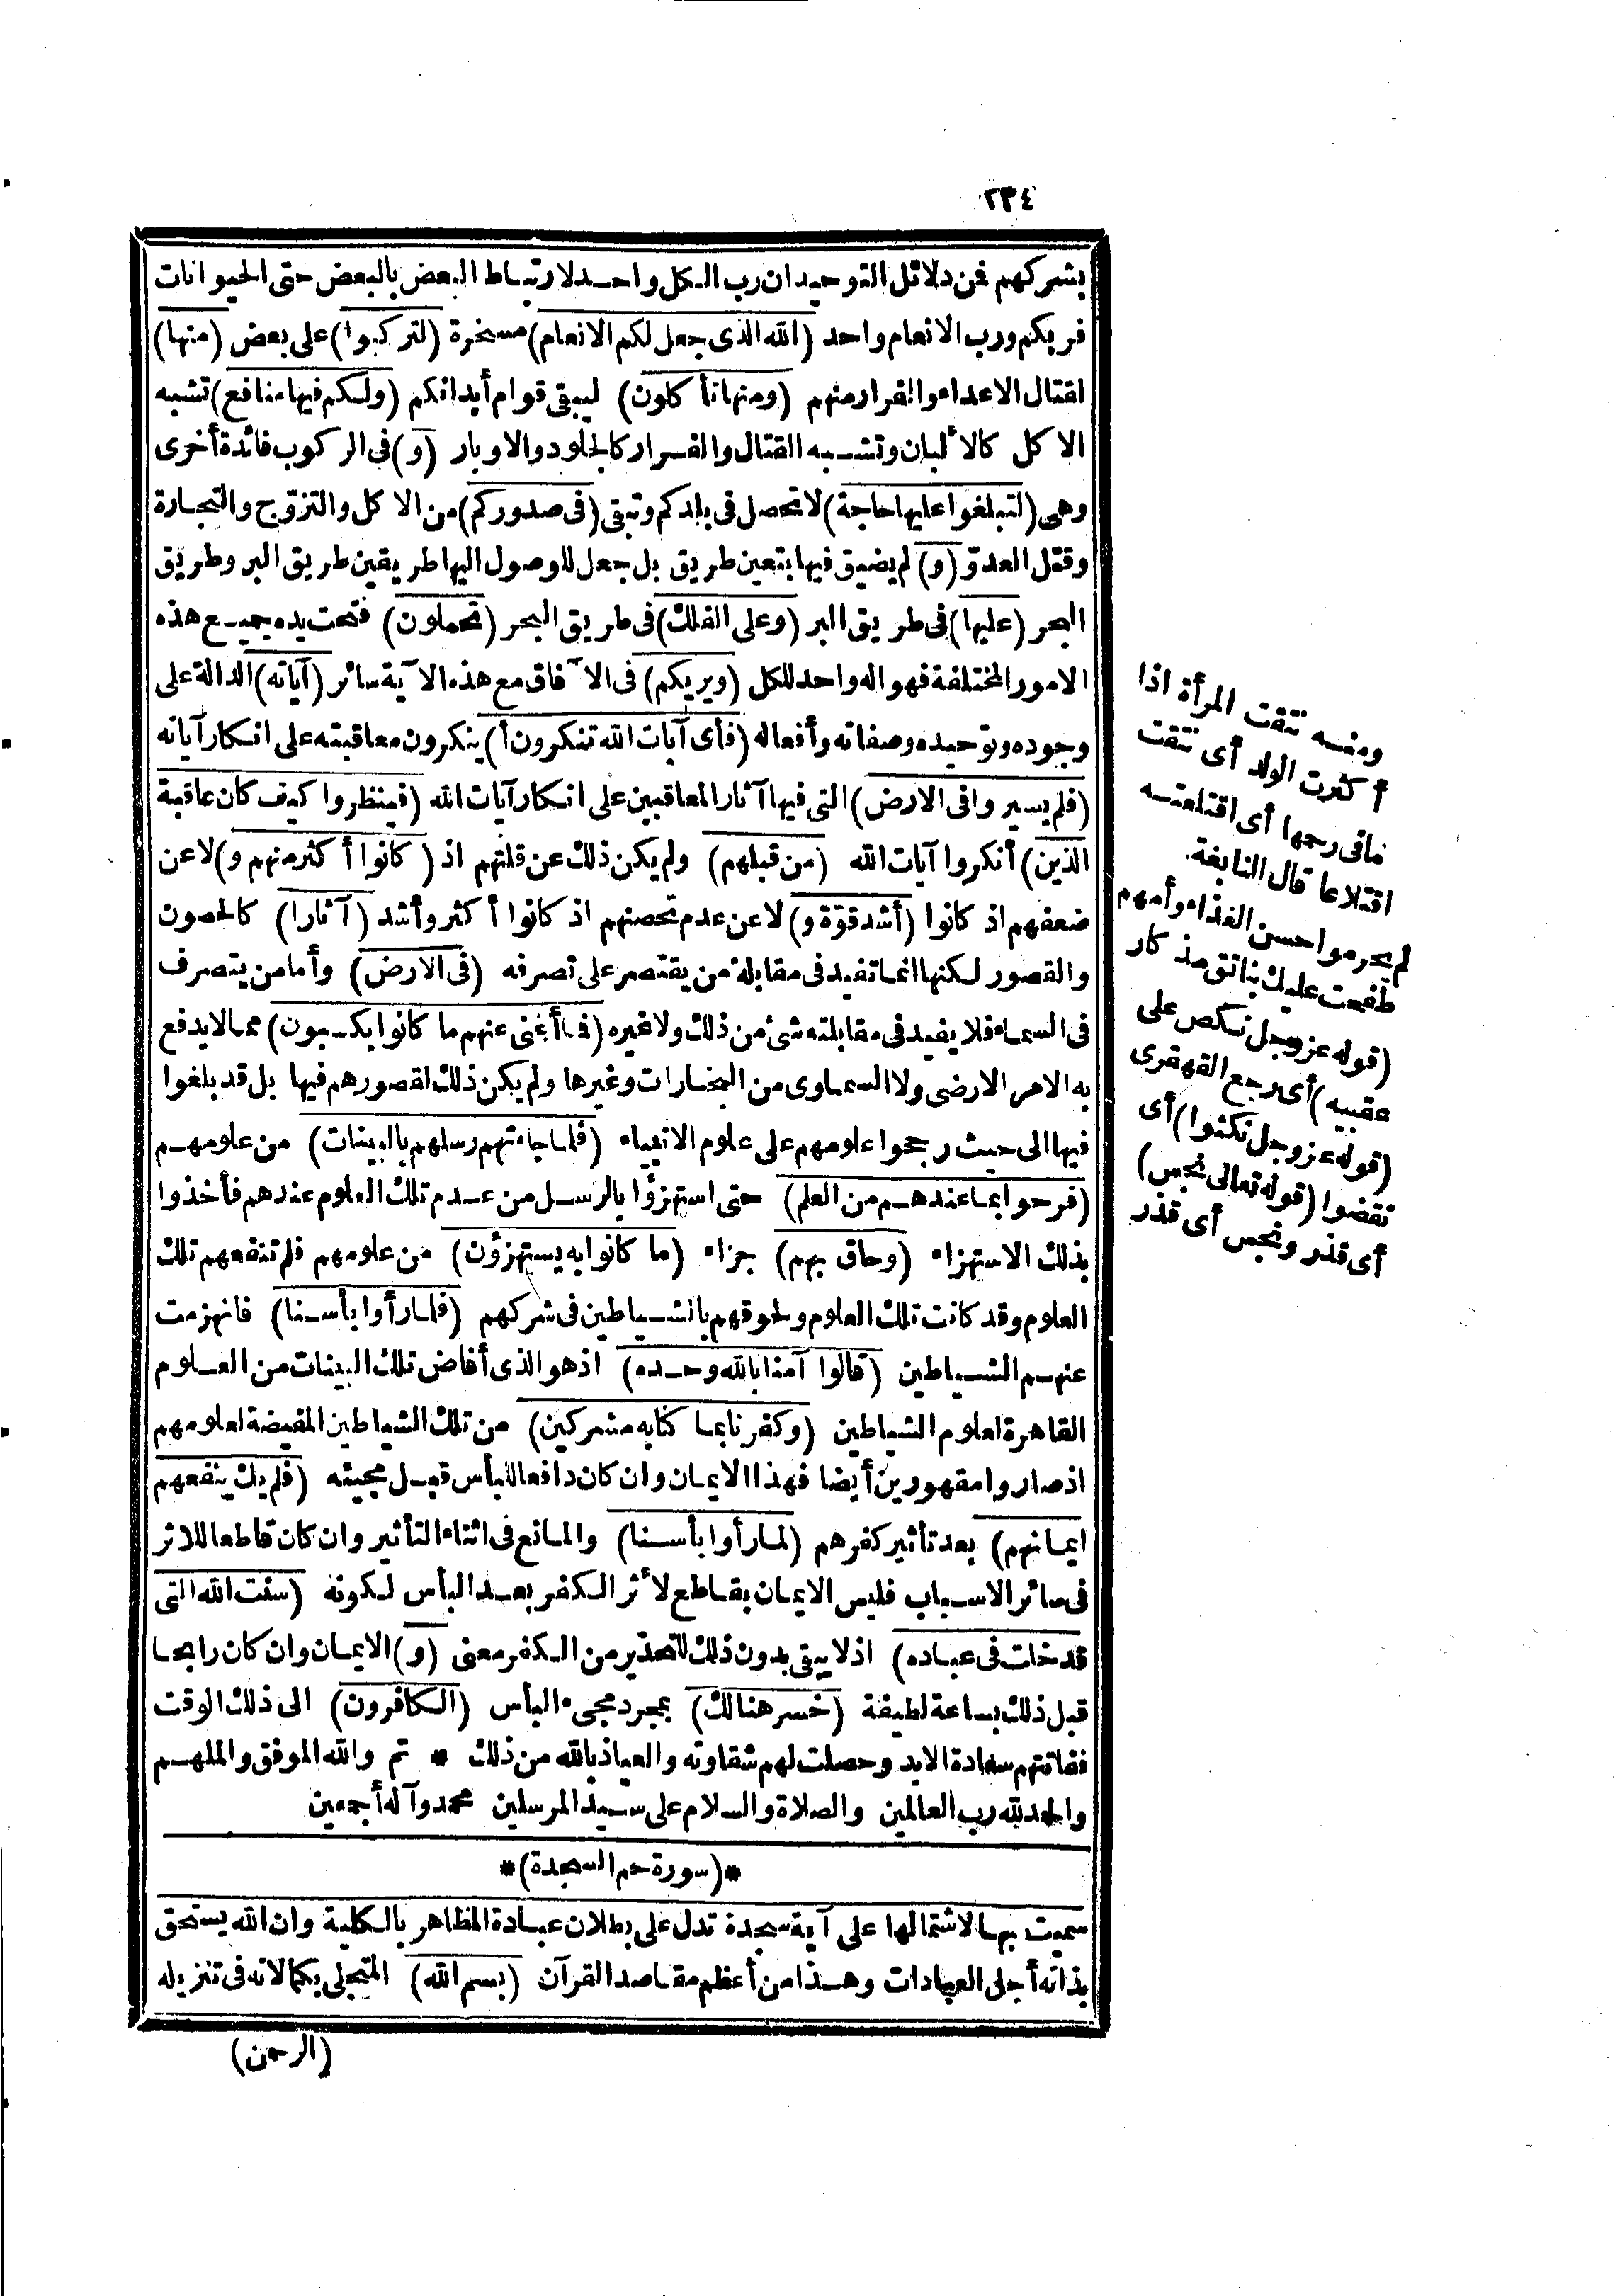 ٢٣٤
بشركهم فمن دلائل التوحيد ان رب الكل واحد لارتباط البعض بالبعض حتى الحيوانات
فربكم ورب الانعام واحد (الله الذى جعل لكم الانعام) مسخرة (لتركبوا) على بعض (منها)
لقتال الاعداء والفرار منهم (ومنها تأكلون) ليبقى قوام أبدانكم (ولكم فيها منافع) تشبه
الاكل كالألبان وتشبه القتال والفرار كالجلود والاوبار (و) فى الركوب فائدة أخرى
وهى (لتبلغوا عليها حاجة) لا تحصل فى بلدكم وتبقى (فى صدوركم) من الاكل والتزوّج والتجارة
وقتل العدوّ (و) لم يضيق فيها بتعين طريق بل جعل للوصول اليها طريقين طريق البر وطريق
البحر (عليها) فى طريق البر (وعلى الفلك) فى طريق البحر (تحملون) فتحت يده جميع هذه
الامور المختلفة فهو اله واحد للكل (ويريكم) فى الآفاق مع هذه الآية سائر (آياته) الدالة على
وجوده وتوحيده وصفاته وأفعاله (فأى آيات الله تنكرون أ) ينكرون معاقبته على انكار آياته
(فلم يسيروا فى الارض) التى فيها آثار المعاقبين على انكار آيات الله (فينظروا كيف كان عاقبة
الذين) أنكروا آيات الله (من قبلهم) ولم يكن ذلك عن قلتهم اذ (كانوا أكثر منهم و) لا عن
ضعفهم اذ كانوا (أشد قوّة و) لا عن عدم تحصنهم اذ كانوا أكثر وأشد (آثارا) كالحصون
والقصور لكنها انما تفيد فى مقابلة من يقتصر على تصرفه (فى الارض) وأما من يتصرف
فى السماء فلا يفيد فى مقابلته شئ من ذلك ولا غيره (فما أغنى عنهم ما كانوا يكسبون) مما لا يدفع
به الامر الارضى ولا السماوى من البخارات وغيرها ولم يكن ذلك لقصورهم فيها بل قد بلغوا
فيها الى حيث رجحوا علومهم على علوم الانبياء (فلما جاءتهم رسلهم بالبينات) من علومهم
(فرحوا بما عندهم من العلم) حتى استهزؤا بالرسل من عدم تلك العلوم عندهم فأخذوا
بذلك الاستهزاء (وحاق بهم) جزاء (ما كانوا به يستهزؤن) من علومهم فلم تنفعهم تلك
العلوم وقد كانت تلك العلوم ولحوقهم بالشياطين فى شركهم (فلما رأوا بأسنا) فانهزمت
عنهم الشياطين (قالوا آمنا بالله وحده) اذ هو الذى أفاض تلك البينات من العلوم
القاهرة لعلوم الشياطين (وكفرنا بما كنا به مشركين) من تلك الشياطين المفيضة لعلومهم
اذ صاروا مقهورين أيضا فهذا الايمان وان كان دافعا للبأس قبل مجيئه (فلم يك ينفعهم
ايمانهم) بعد تأثير كفرهم (لما رأوا بأسنا) والمانع فى اثناء التأثير وان كان قاطعا للاثر
فى سائر الاسباب فليس الايمان بقاطع لأثر الكفر بعد البأس لكونه (سنت الله التى
قد خلت فى عباده) اذ لا يبقى بدون ذلك للتحذير من الكفر معنى (و) الايمان وان كان رابحا
قبل ذلك بساعة لطيفة (خسر هنالك) بمجرد مجىء البأس (الكافرون) الى ذلك الوقت
ففاتتهم سعادة الابد وحصلت لهم شقاوته والعياذ بالله من ذلك * تم والله الموفق والملهم
والحمد لله رب العالمين والصلاة والسلام على سيد المرسلين محمد وآله أجمعين
*(سورة حم السجدة)*
سميت بها لاشتمالها على آية سجدة تدل على بطلان عبادة المظاهر بالكلية وان الله يستحق
بذاته أجلى العبادات وهذا من أعظم مقاصد القرآن (بسم الله) المتجلى بكمالاته فى تنزيله
(الرحمن)
ومنه نتقت المرأة اذا
أكثرت الولد أى نتقت
مافى رحمها أى اقتلعته
اقتلاعا قال النابغة.
لم يحرموا حسن الغذاء وأمهم
طفحت عليك بناتق مذكار
(قوله عز وجل نكص على
عقبيه) أى رجع القهقرى
(قوله عز وجل نكثوا) أى
نقضوا (قوله تعالى نجس)
أى قذر ونجس أى قذر